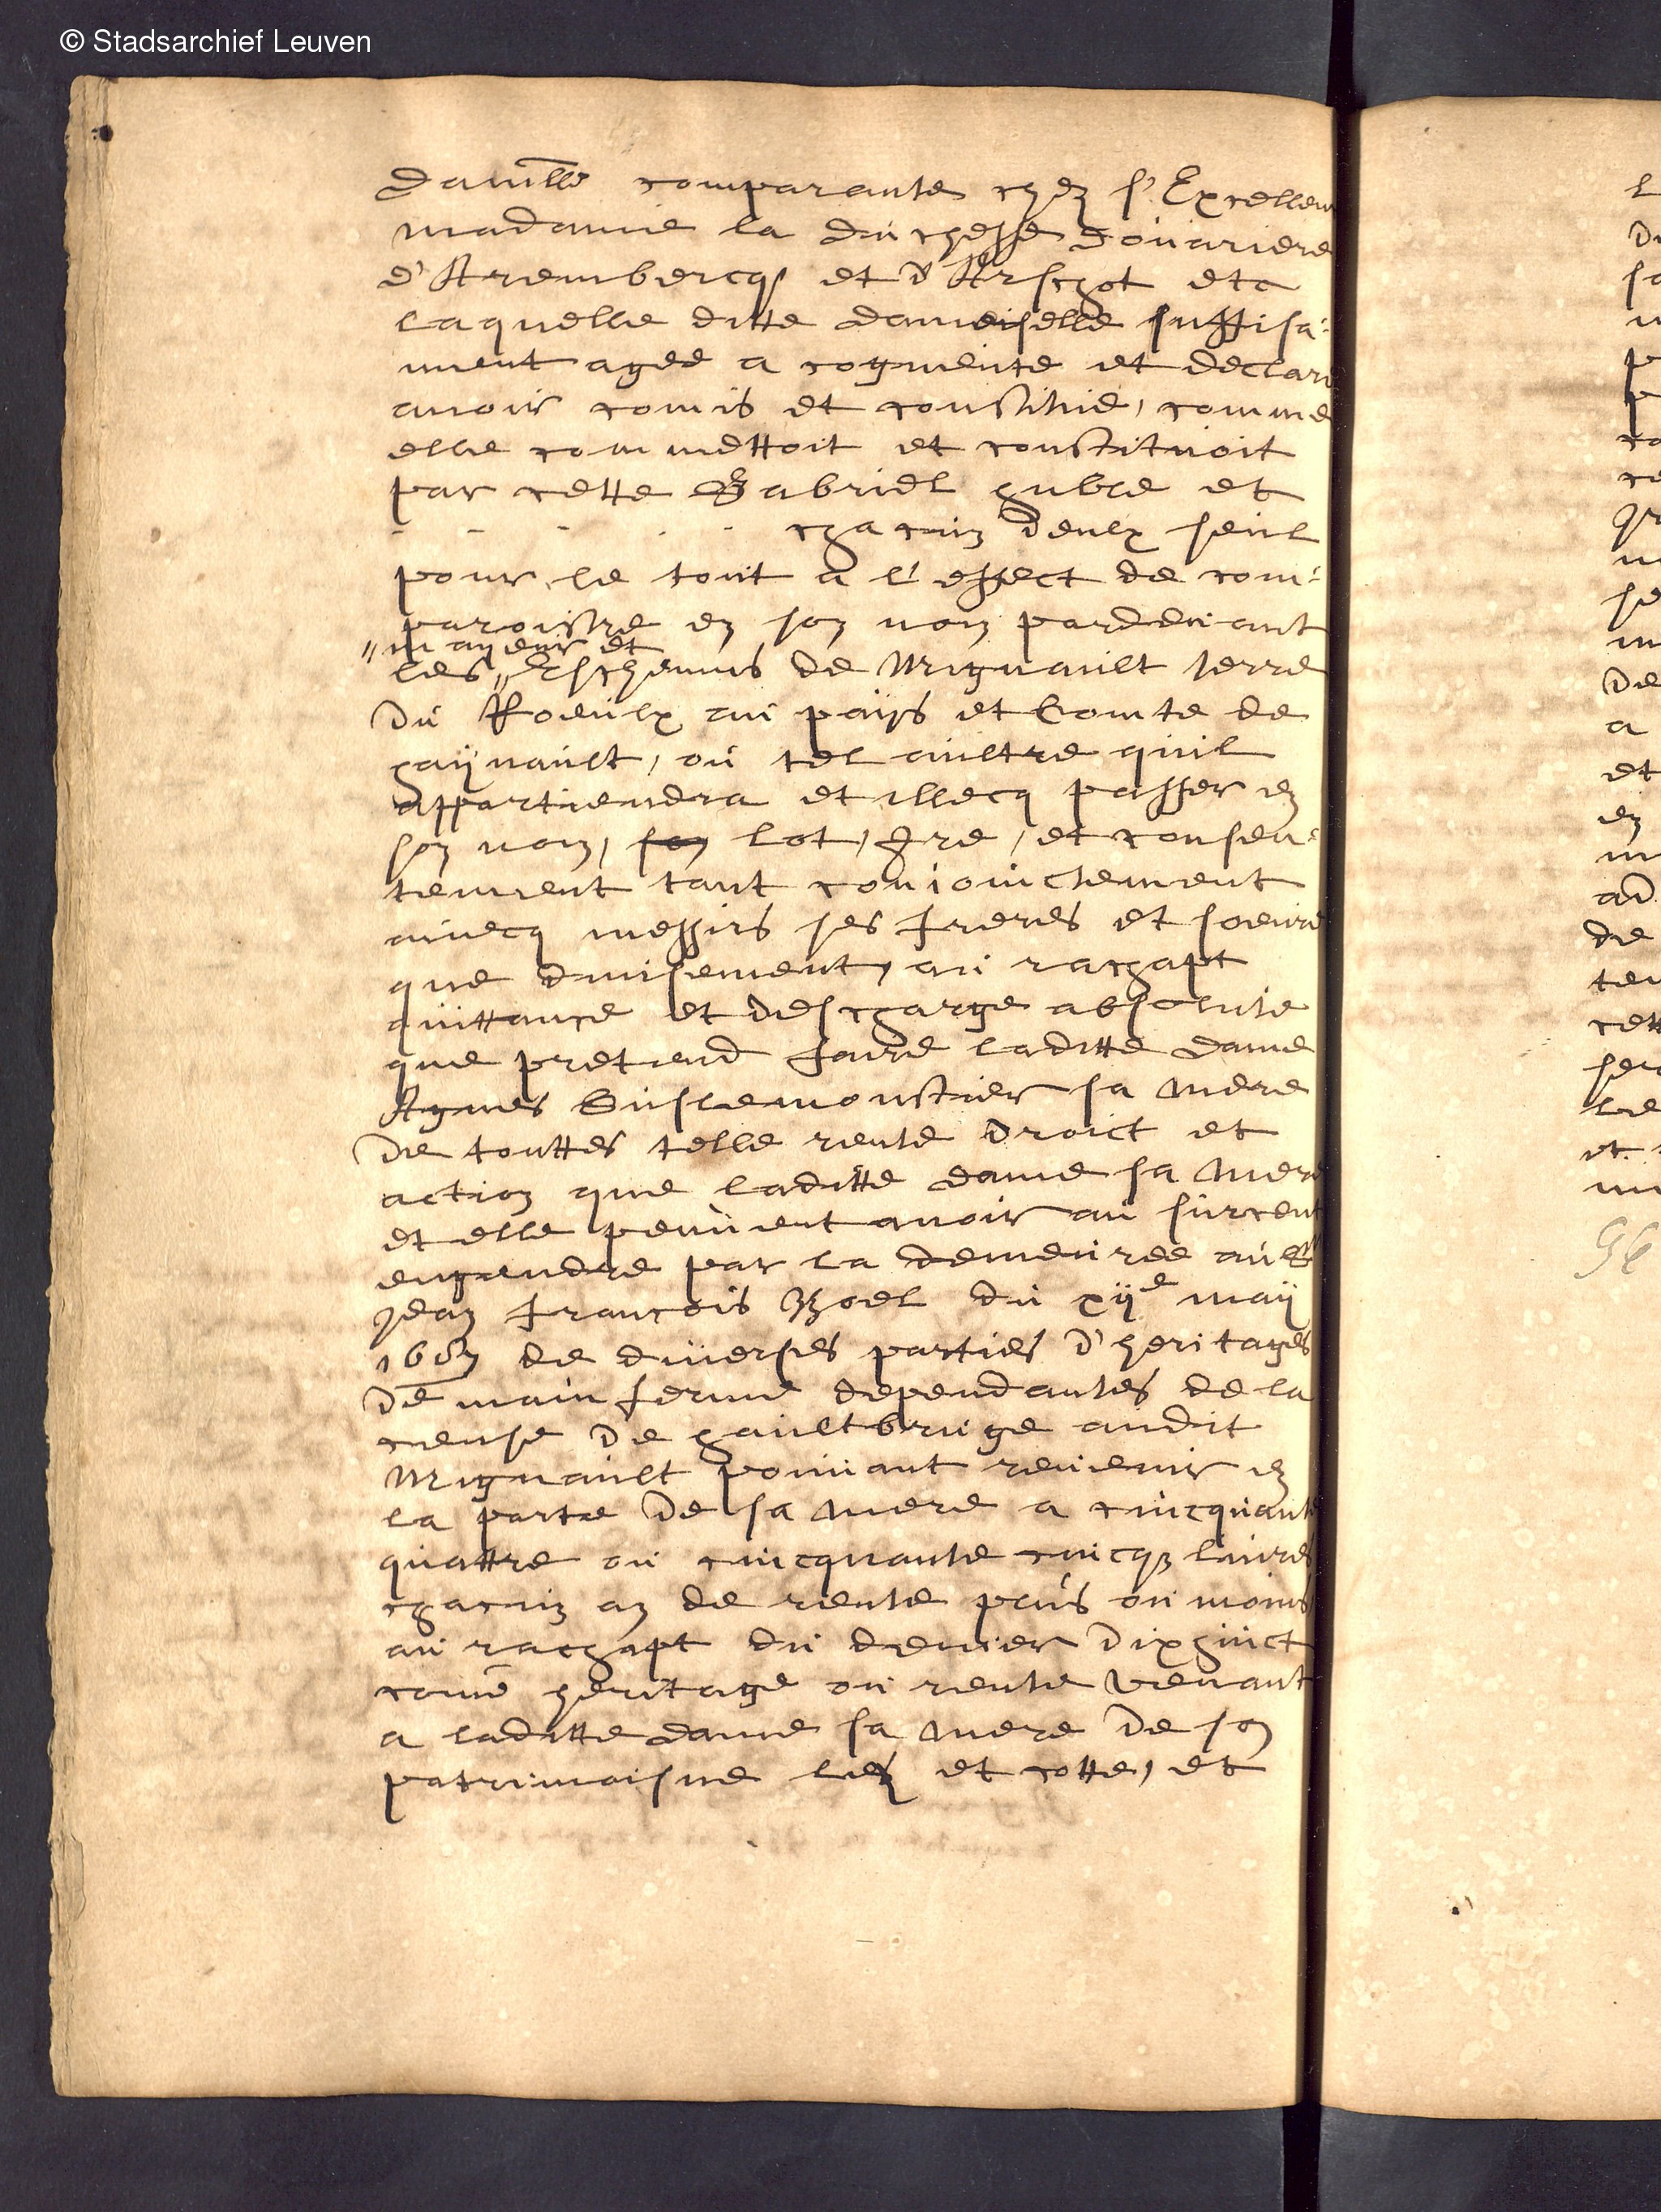 © Stadsarchief Leuven
damlle comparante chez s'Excellen
madame la duchesse douariere
d'Arembercqs et d'Arschot etc
laquelle ditte dameiselle suffisa-
ment agee a cognente et declare
avoir comis et constitué, comme
elle commettoit et constituoit
par cette Gabriel huble et
- - - - - chacun deulx seul
pour le tout a l'effect de com-
paroistre en son nom pardevant
" mayeur et
les " Eschevins de Mignault terre
du Roeulx au pays et Comte de
haijnault, ou tel aultre quil
appartiendra et illecq passer en
son nom, son lot, gre, et consen-
tement tant conioinctement
avecq messirs ses freres et soeure
que divisement, au rachapt
quittance et descharge absolute
que pretend faire laditte dame
Agnes Buslemonstier sa mere
de touttes telle rente droict et
action que laditte dame sa mere
et elle peuvent avoir au surcent
engendre par la demeuree aud
Jean francois Noel du xije maij
de diverses parties d'heritages
de main ferme dependantes de la
cense de haultbruge audit
Mignault pouvant revenir en
la parte de sa mere a cincquante
quattre ou cincquante cincq livres
chacun an de rente plus ou moins
au rachapt du denier dixhuict
come heritage ou rente venant
a laditte dame sa mere de son
patrimoisne lez et cotte, et